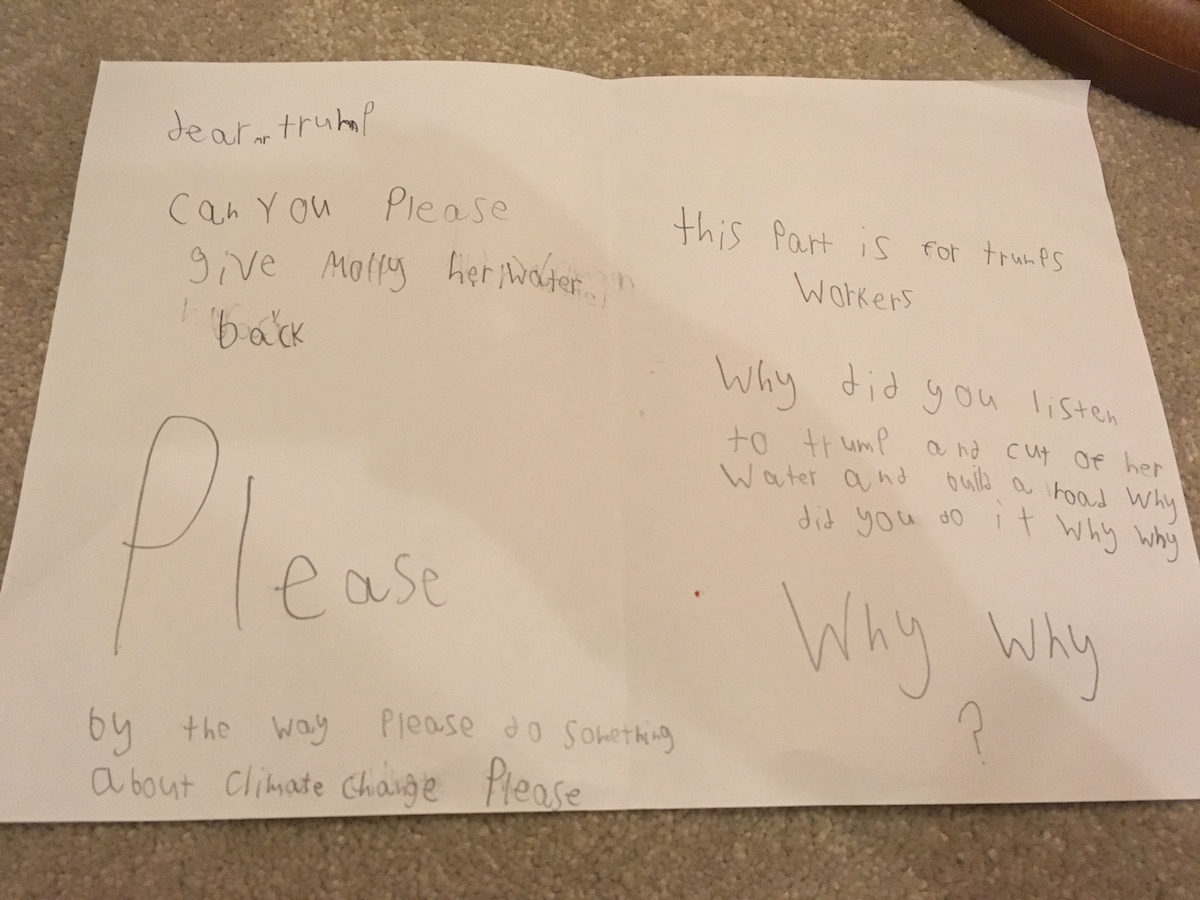 dear mr trump
can You Please
give Molly her water
back
Please
by the way Please do something
about climate change Please
this Part is for trumps
workers
Why did you listen
to trump and cut of her
water and build a road Why
did you do it Why why
Why Why
?